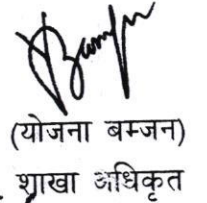 (योजना बम्जन)
शाखा अधिकृत